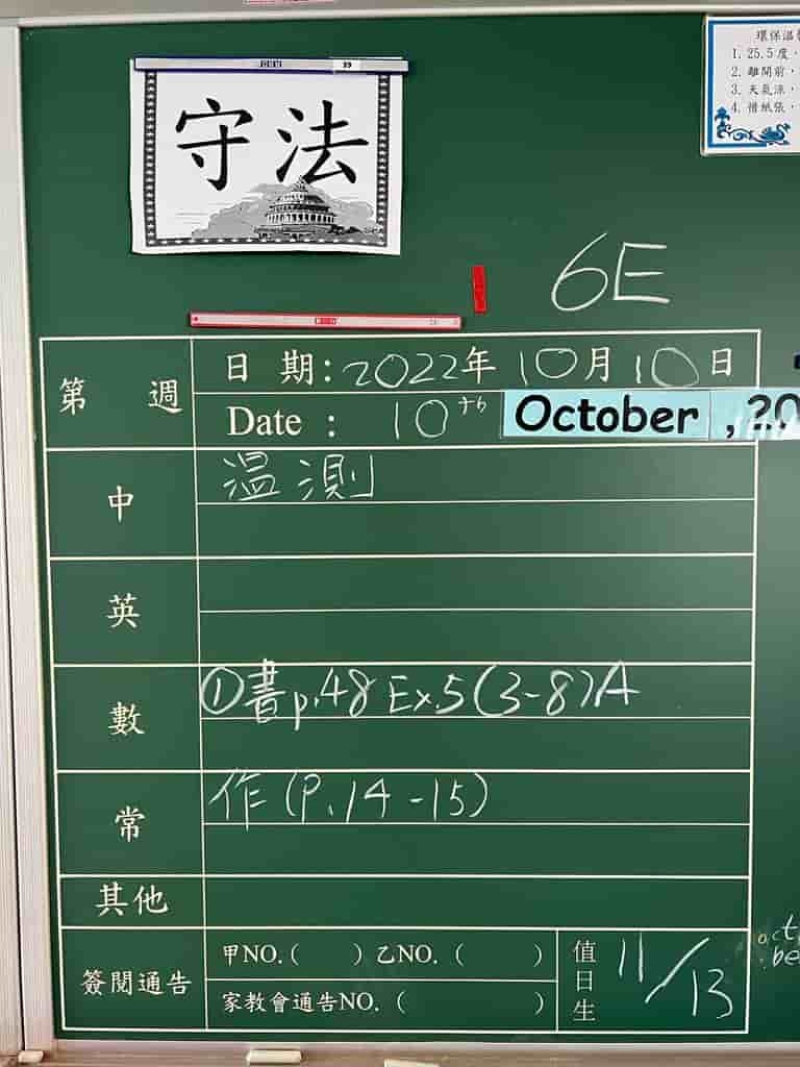 環保溫
1. 25.5度,
2. 離開前,
3. 天氣涼,
4. 惜紙張,
守法
6E
第 週
日 期: 2022年 10月 10日
Date : 10th October, 20
中
温測
英
數
①書p.48 Ex.5(3-8)A
常
作(P.14-15)
其他
簽閱通告
甲NO.( ) 乙NO. ( )
家教會通告NO. ( )
值日生
11/13
oct
be